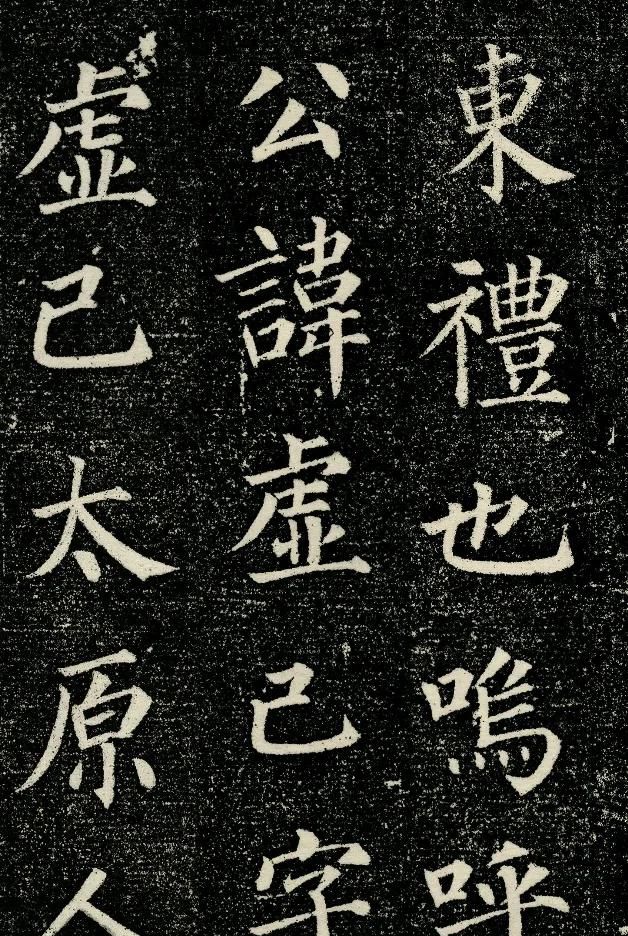 東禮也嗚呼
公諱虛己字
虛己太原人